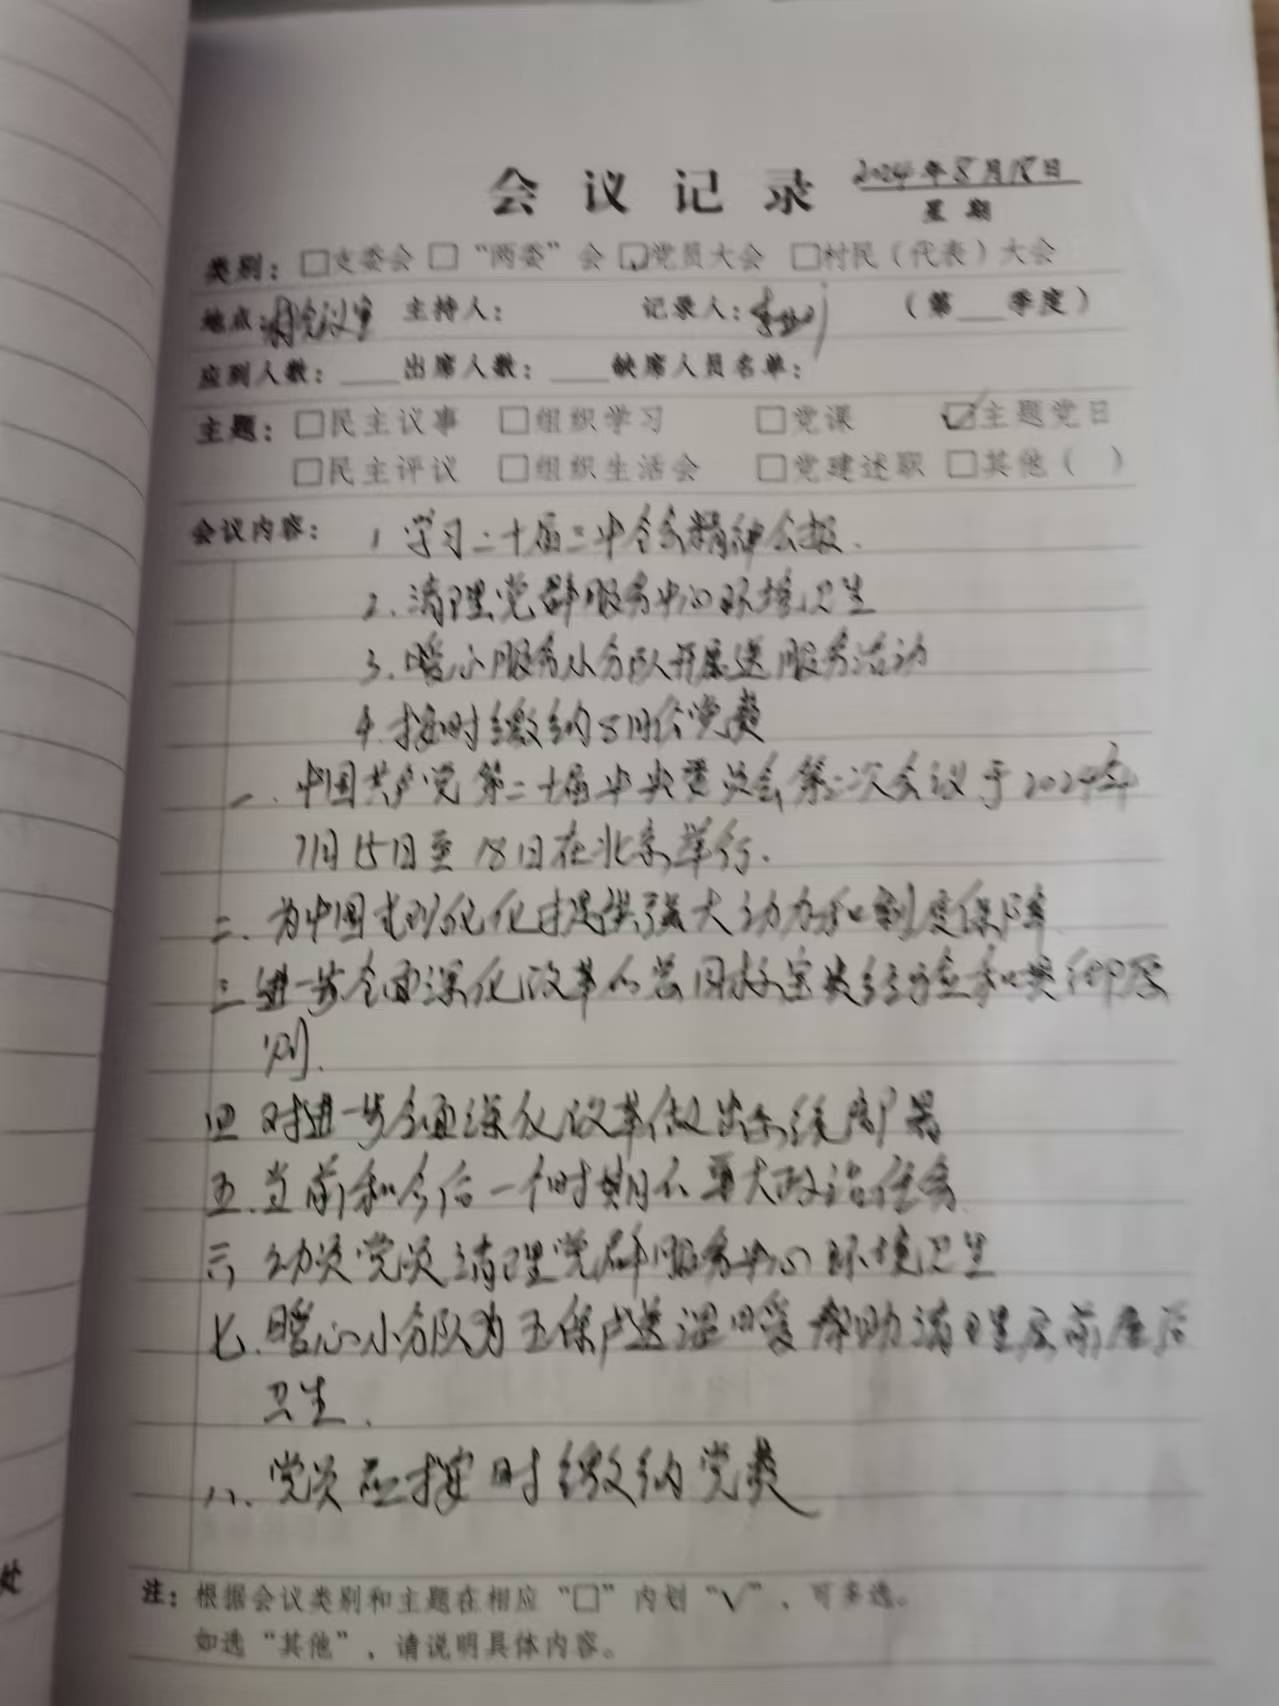 会议记录 2024年8月18日
星期
类别：□支委会 □“两委”会 ☑党员大会 □村民（代表）大会
地点：村会议室 主持人： 记录人： （第___季度）
应到人数：___出席人数：___缺席人员名单：
主题：□民主议事 □组织学习 □党课 ☑主题党日
□民主评议 □组织生活会 □党建述职 □其他（ ）
会议内容： 1 学习二十届三中全会精神公报.
2. 清理党群服务中心环境卫生
3. 暖心服务小分队开展送服务活动
4. 按时缴纳8月份党费
一. 中国共产党第二十届中央委员会第三次会议于2024年
7月15日至18日在北京举行.
二. 为中国式现代化提供强大动力和制度保障
三 进一步全面深化改革的总目标宝贵经验和贯彻原
则.
四 对进一步全面深化改革做出系统部署
五. 当前和今后一个时期的重大政治任务.
六 动员党员清理党群服务中心环境卫生
七. 暖心小分队为五保户送温暖帮助清理房前屋后
卫生.
八. 党员应按时缴纳党费
注：根据会议类别和主题在相应“□”内划“√”，可多选。
如选“其他”，请说明具体内容。
处